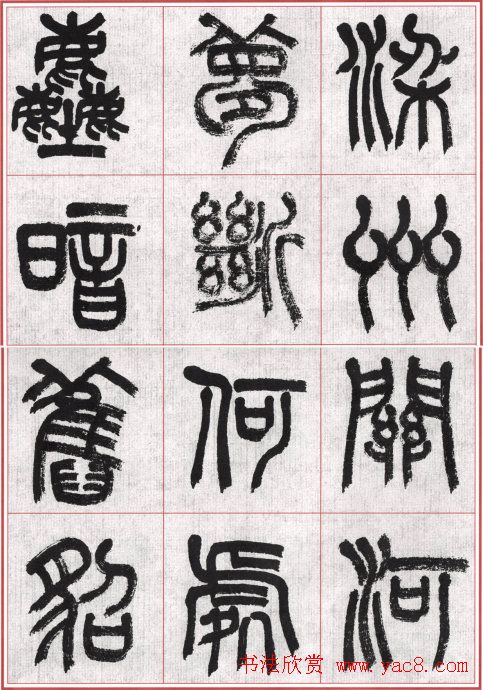 梁州關河
夢斷何處
塵暗舊貂
书法欣赏 www.yac8.com